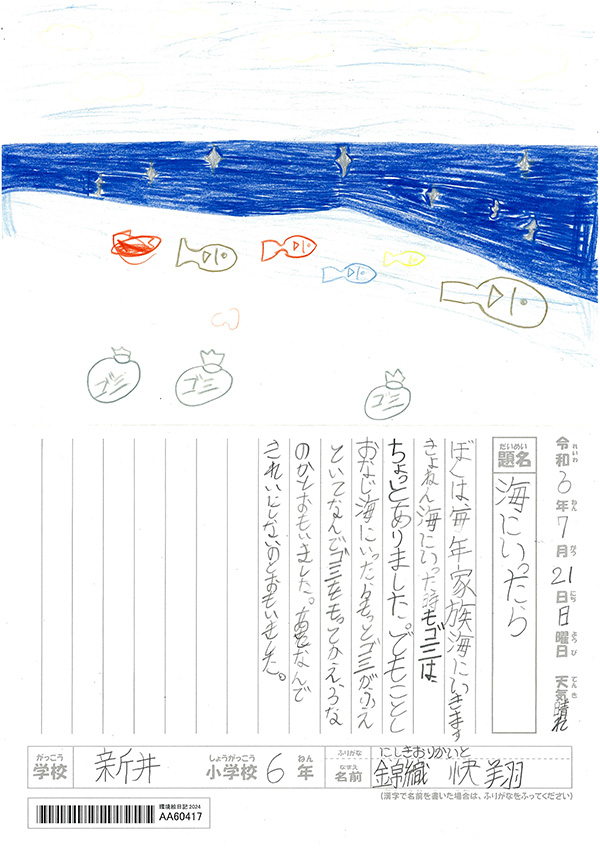 ゴミ
ゴミ
ゴミ
令和6年7月21日日曜日 天気晴れ
れいわ ねん がつ にち ようび てんき
だいめい
題名
海にいったら
ぼくは、毎年家族海にいきます
きょねん海にいった時もゴミは
ちょっとありました。でもことし
おなじ海にいったらもっとゴミがふえ
といてなんでゴミをもってかえらな
のかとおもいました。あとなんで
きれいにしないのとおもいました。
がっこう しょうがっこう ねん ふりがな にしきおりかいと
学校 新井 小学校 6年 なまえ 名前 錦織 快翔
(漢字で名前を書いた場合は、ふりがなをふってください)
環境絵日記2024
AA60417